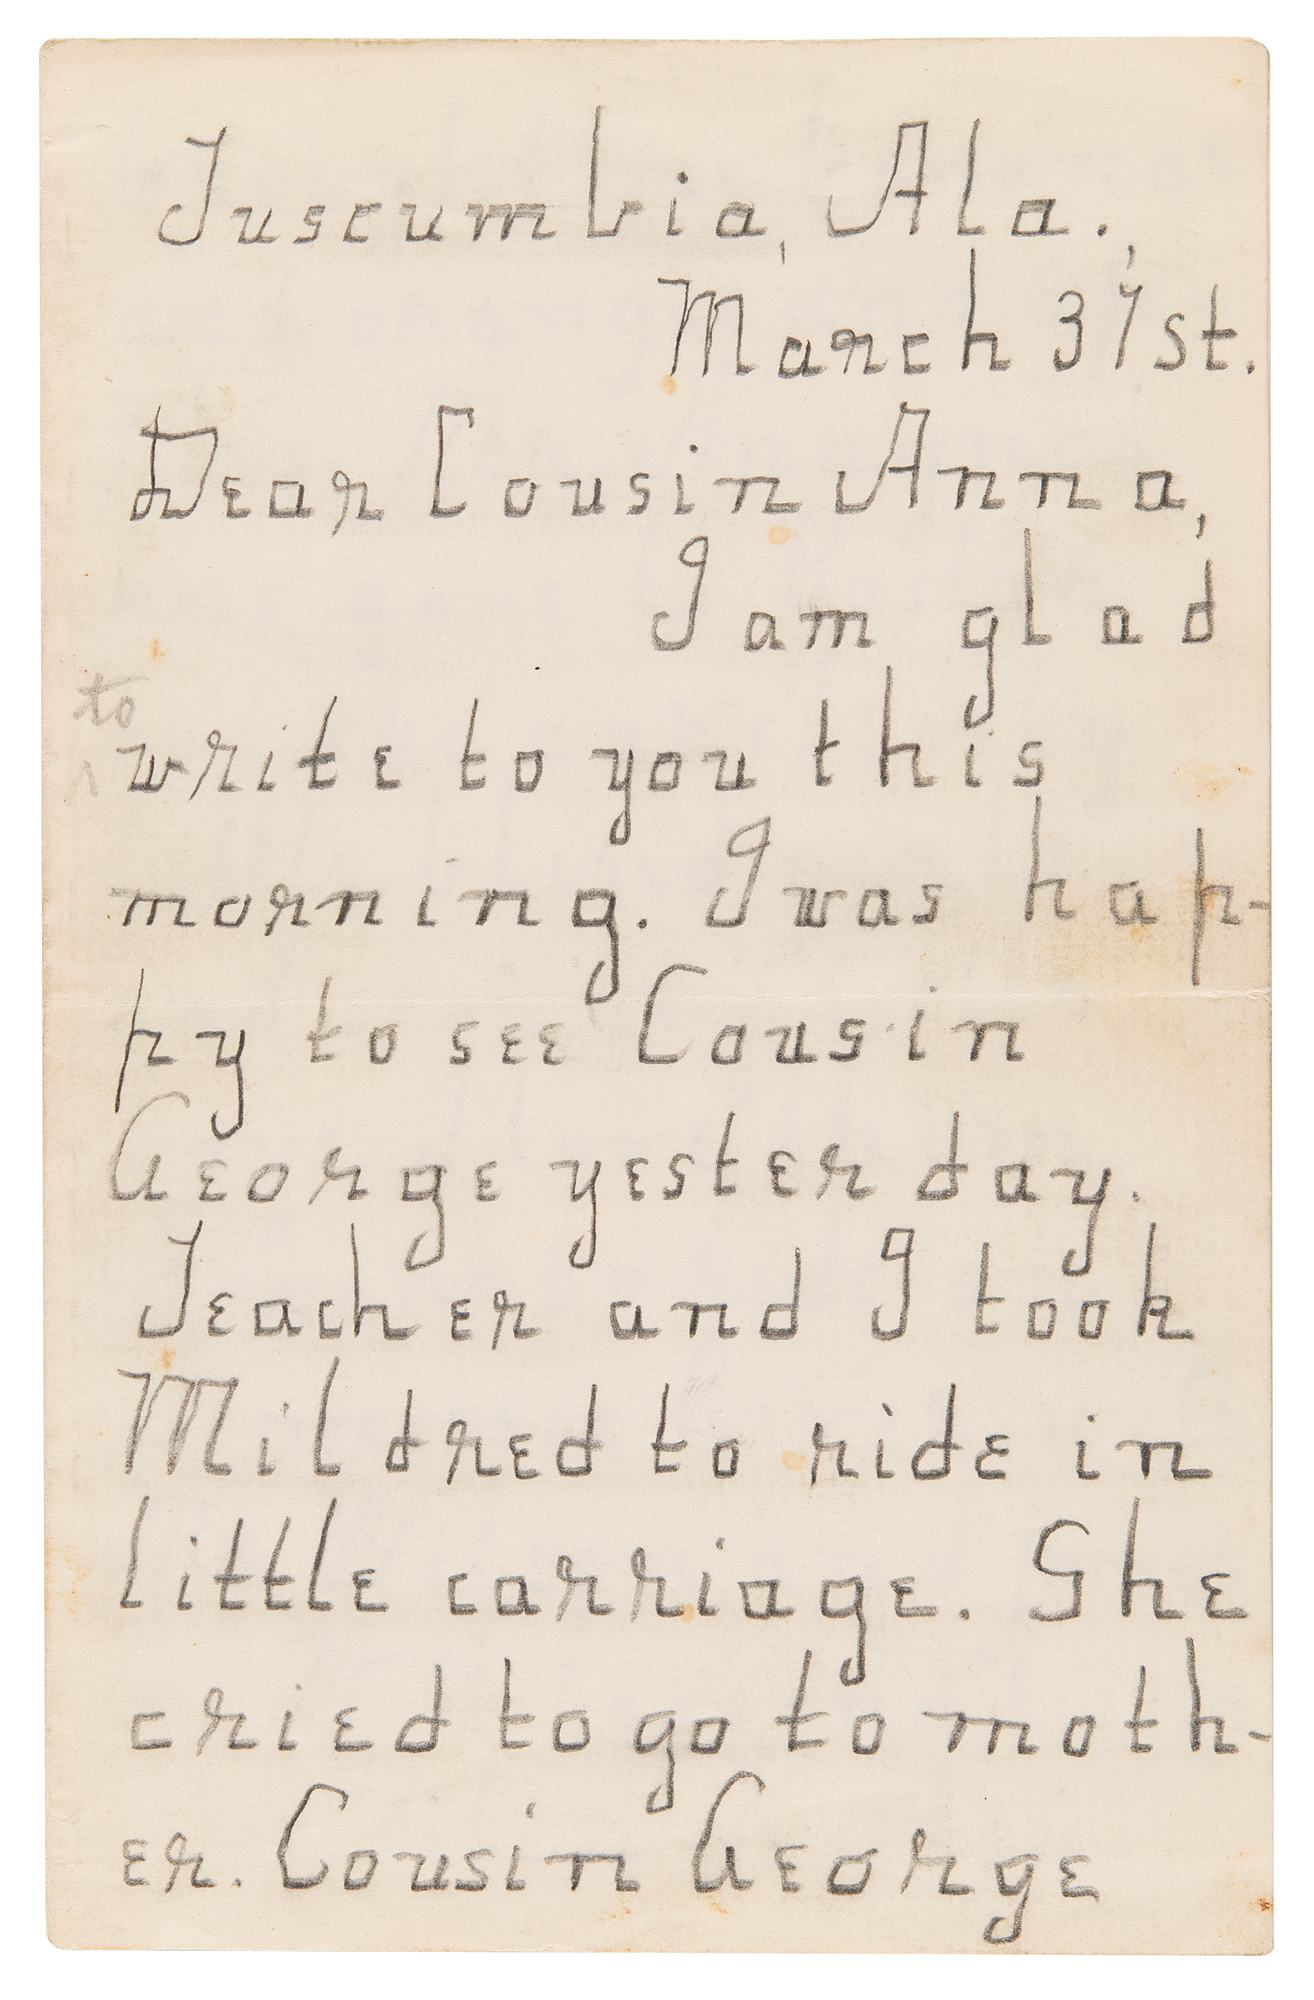 Tuscumbia, Ala.,
March 31st.
Dear Cousin Anna,
I am glad
to
write to you this
morning. I was hap-
py to see Cousin
George yesterday.
Teacher and I took
Mildred to ride in
little carriage. She
cried to go to moth-
er. Cousin George